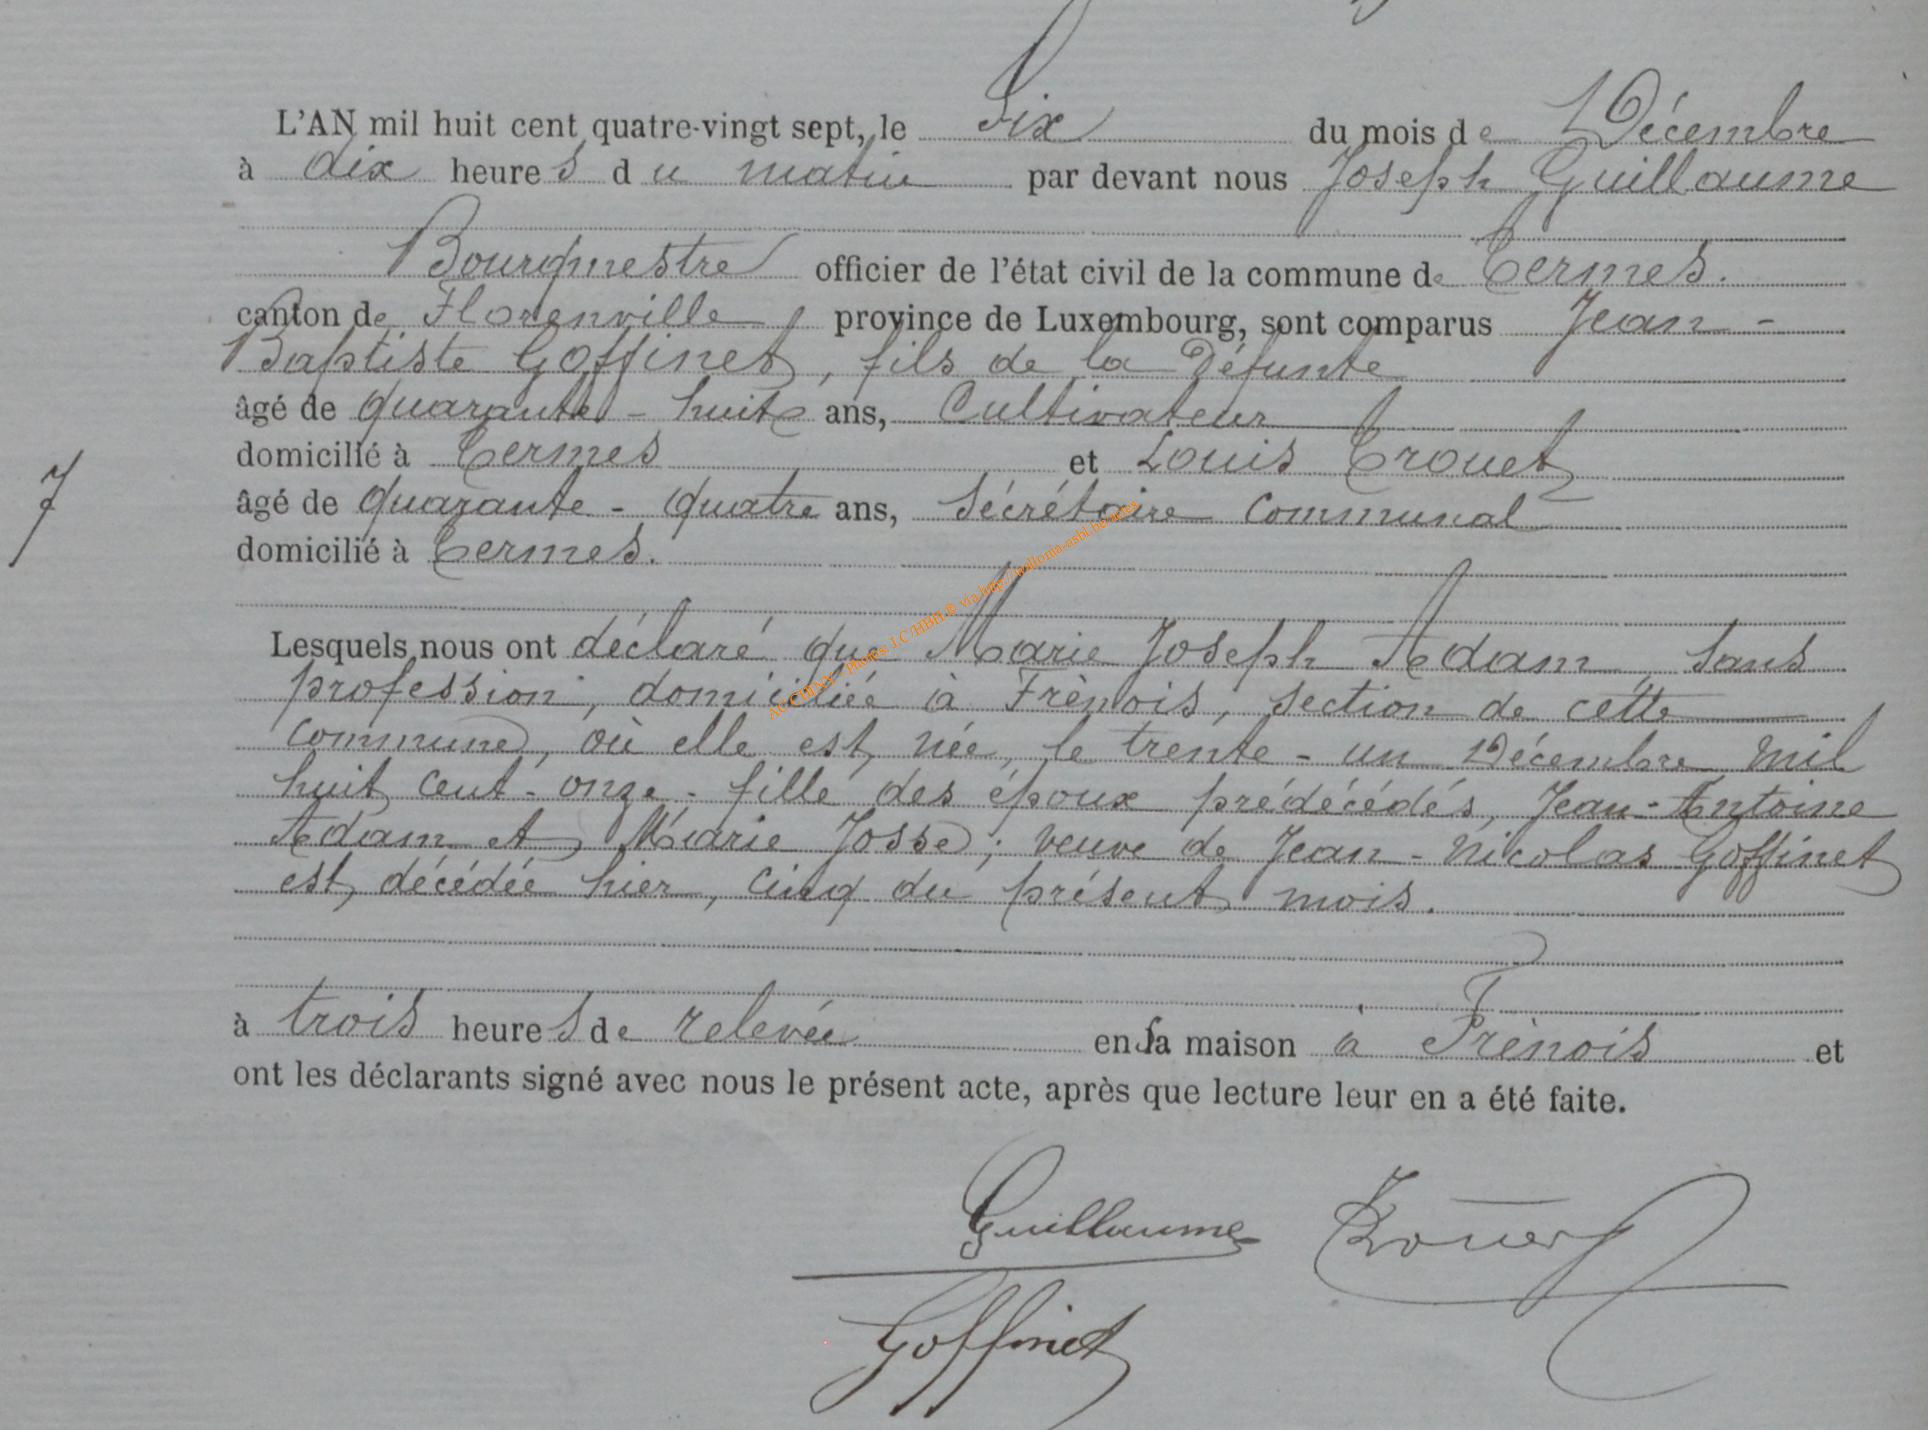 L'AN mil huit cent quatre-vingt sept, le Six du mois de Décembre
à dix heures du matin par devant nous Joseph Guillaume
Bourgmestre officier de l'état civil de la commune de Termes.
canton de Florenville province de Luxembourg, sont comparus Jean-
Baptiste Goffinet, fils de la Défunte
âgé de quarante-huit ans, Cultivateur
domicilié à Termes et Louis Trouet
âgé de quarante-quatre ans, Sécrétaire Communal
domicilié à Termes.
7
Lesquels nous ont déclaré que Marie Joseph Adam, sans
profession, domiciliée à Frènois, section de cette
commune, où elle est née, le trente-un Décembre mil
huit cent-onze - fille des époux prédécédés, Jean-Antoine
Adam et Marie Josse; veuve de Jean-Nicolas Goffinet
est décédée hier, cinq du présent mois.
à trois heures de relevée en sa maison à Frènois et
ont les déclarants signé avec nous le présent acte, après que lecture leur en a été faite.
Guillaume Trouet
Goffinet